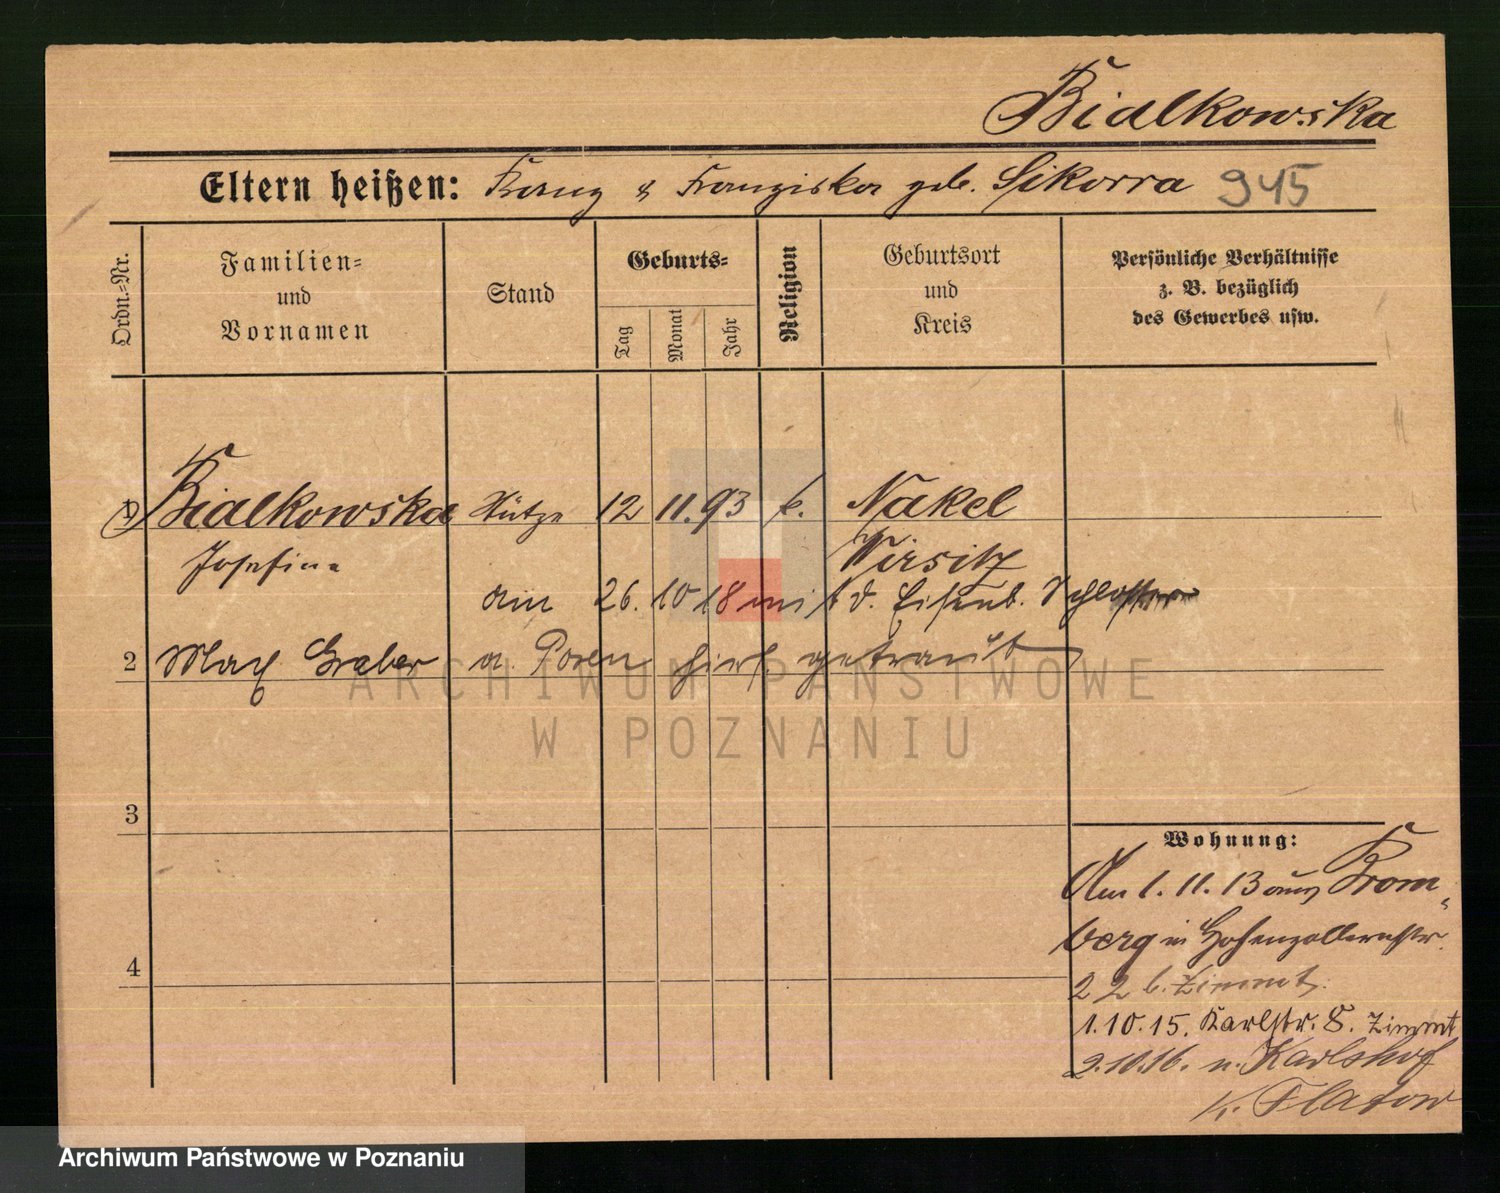 Bialkowska
Eltern heißen: Franz & Franziska geb. Sikorra 945
Ordn.-Nr.
Familien-
und
Vornamen
Stand
Geburts-
Tag
Monat
Jahr
Religion
Geburtsort
und
Kreis
Persönliche Verhältnisse
z. B. bezüglich
des Gewerbes usw.
1 Bialkowska Stütze 12 11. 93 k. Nakel
Josefina Wirsitz
am 26. 10 18 mit d. Eisenb. Schlosser
2 Max Graber a. Posen hies. getraut
3
4
Wohnung:
Am 1. 11. 13 aus Brom-
berg in Hohenzollernstr.
22 b. Zimmt.
1. 10. 15. Karlstr. 8. Zimmt
2. 10. 16. n. Karlshof
K. Flatow
ARCHIWUM PAŃSTWOWE
W POZNANIU
Archiwum Państwowe w Poznaniu